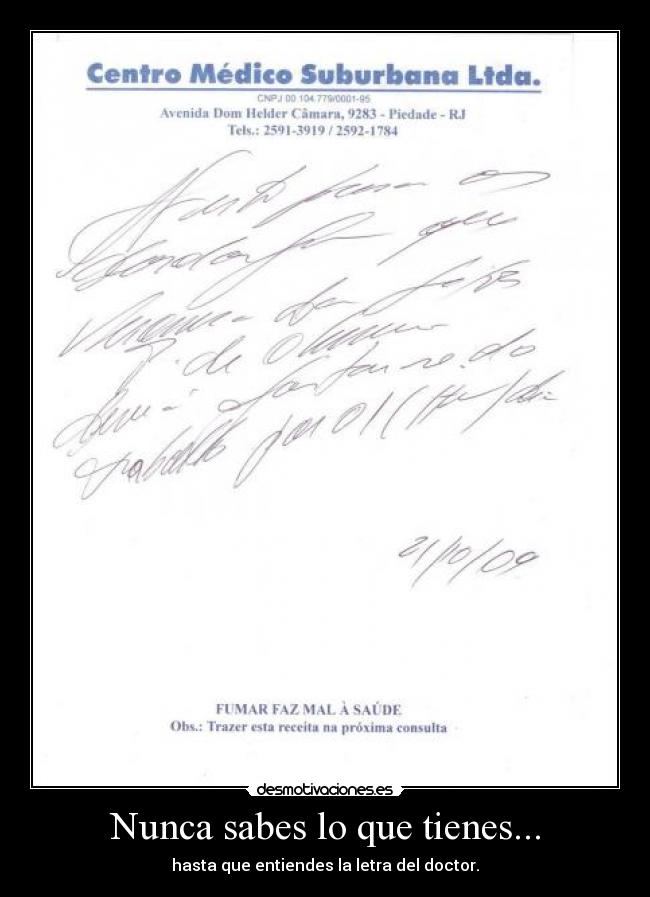 Centro Médico Suburbana Ltda.
CNPJ 00.104.779/0001-95
Avenida Dom Helder Câmara, 9283 - Piedade - RJ
Tels.: 2591-3919 / 2592-1784
Atesto para os
que
de
do
trabalho por 01 (Hum) dia
21/10/09
FUMAR FAZ MAL À SAÚDE
Obs.: Trazer esta receita na próxima consulta
desmotivaciones.es
Nunca sabes lo que tienes...
hasta que entiendes la letra del doctor.